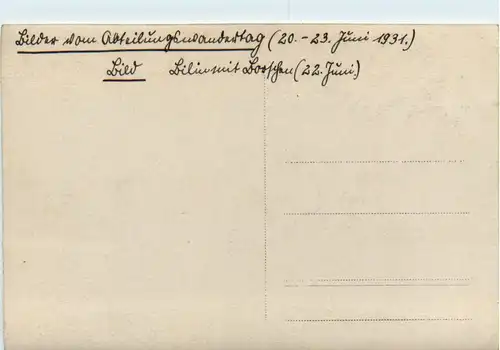 Bilder vom Abteilungswandertag (20. - 23. Juni 1931.)
Bild Bilin mit Borschen (22. Juni.)